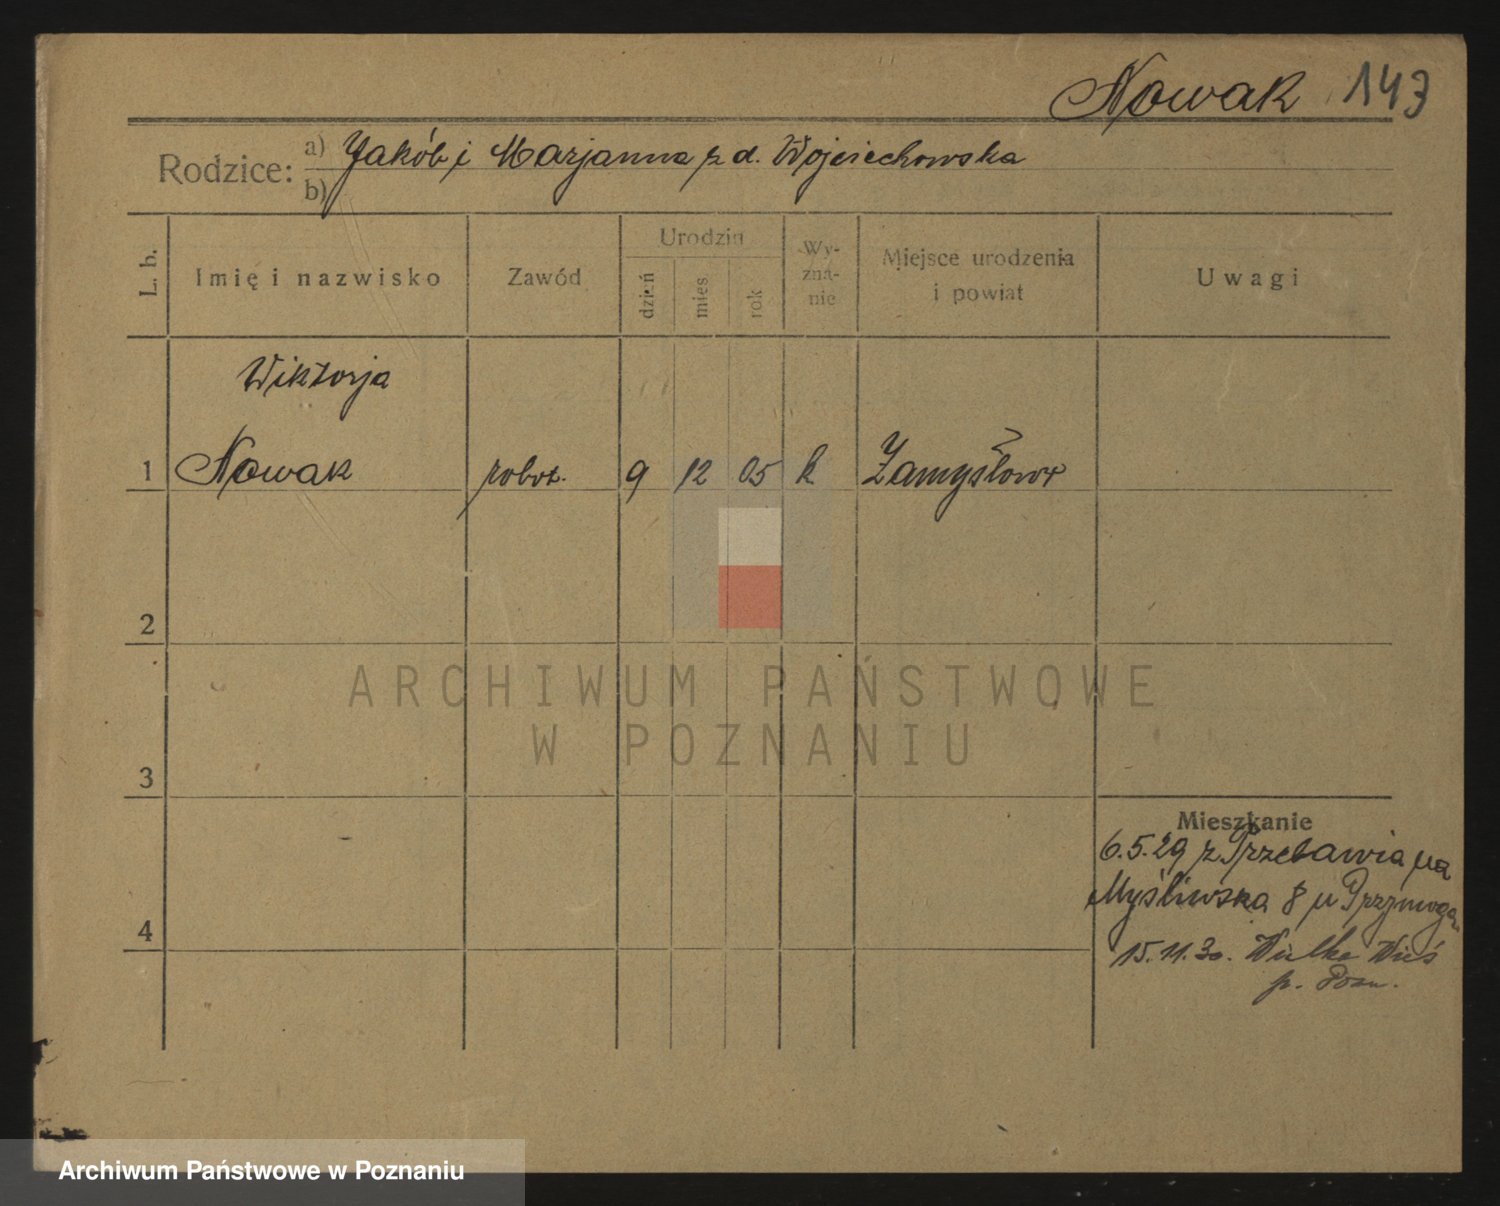 Nowak 143
Rodzice: a) Jakób i Marjanna z d. Wojciechowska
b)
L. b. Imię i nazwisko Zawód Urodzin dzień mies rok Wy-zna-nie Miejsce urodzenia i powiat Uwagi
Wiktorja
1 Nowak robot. 9 12 05 k Zamysłowo
2
ARCHIWUM PAŃSTWOWE
W POZNANIU
3
Mieszkanie
6.5.29 z Przebawia na
Myśliwska 8 u Przymoga
4
15.11.30. Wielka Wieś
p. Pozn.
Archiwum Państwowe w Poznaniu